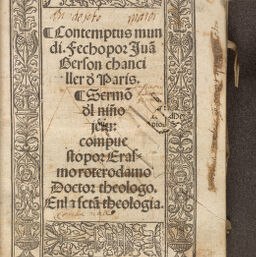 ¶Contemptus mun
di. Fecho por Juã
Gerson chanci
ller ð Paris.
¶Sermõ
ðl niño
jesu:
compue
sto por Eras
mo roterodamo
Doctor theologo.
En la sctã theologia.